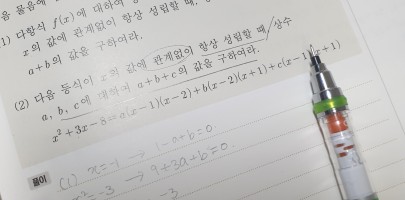 음 물음에
1) 다항식 f(x)에 대하여
x의 값에 관계없이 항상 성립할 때,
a+b의 값을 구하여라.
(2) 다음 등식이 x의 값에 관계없이 항상 성립할 때, 상수
a, b, c에 대하여 a+b+c의 값을 구하여라.
x²+3x-8=a(x-1)(x-2)+b(x-2)(x+1)+c(x-1)(x+1)
풀이
(1) x=-1 → 1-a+b=0.
x²=-3 → 9+3a+b=0.
-3